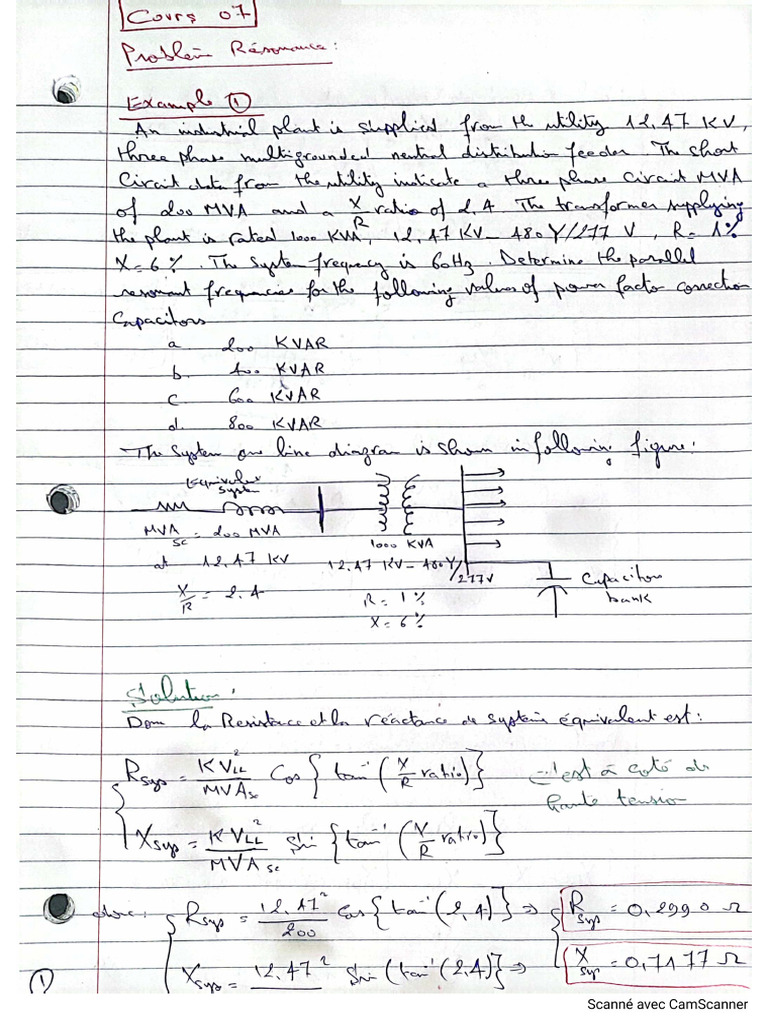 Cours 07
Problèm Résonance:
Example ①
An industrial plant is supplied from the utility 12,47 KV,
three phase multigrounded neutral distribution feeder. The short
Circuit data from the utility indicate a three phase circuit MVA
of 200 MVA and a X/R ratio of 2,4. The transformer supplying
the plant is rated 1000 KVA, 12,47 KV - 480 Y/277 V, R = 1%
X = 6%. The system frequency is 60 Hz. Determine the parallel
resonant frequencies for the following values of power factor correction
Capacitors
a. 200 KVAR
b. 400 KVAR
c. 600 KVAR
d. 800 KVAR
The System one line diagram is shown in following figure:
Equivalent
System
MVAsc = 200 MVA
at 12,47 KV
X/R = 2.4
1000 KVA
12,47 KV - 480Y/277V
R = 1%
X = 6%
Capacitor
bank
Solution:
Donc la Resistance et la réactance de système équivalent est:
Rsys = KV_LL²/MVAsc Cos{tan⁻¹(X/R ratio)}
c'est à coté de
haute tension
Xsys = KV_LL²/MVAsc Sin{tan⁻¹(X/R ratio)}
donc: Rsys = 12,47²/200 Cos{tan⁻¹(2,4)} ⇒ Rsys = 0,2990 Ω
Xsys = 12,47² Sin(tan⁻¹(2,4)) ⇒ Xsys = 0,7177 Ω
①
Scanné avec CamScanner